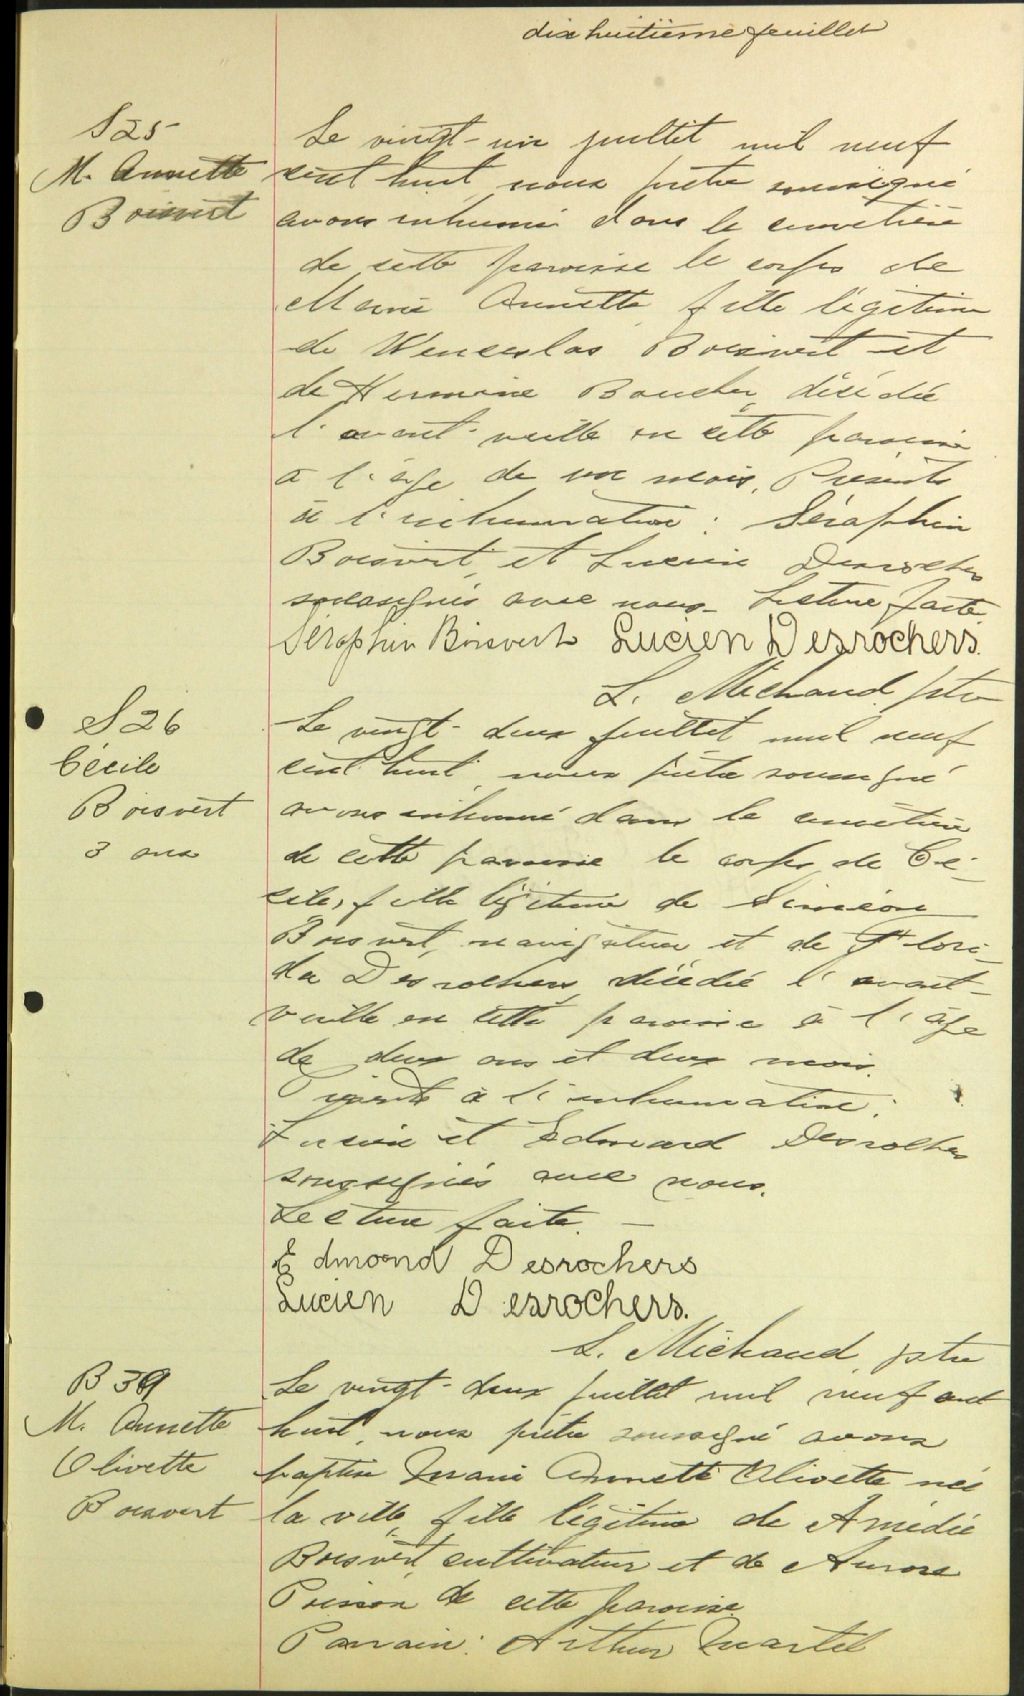 dix huitième feuillet
S 25
M. Annette
Boisvert
Le vingt-un juillet mil neuf
cent huit, nous prêtre soussigné
avons inhumé dans le cimetière
de cette paroisse le corps de
Marie Annette fille légitime
de Wenceslas Boisvert et
de Hermine Boucher, décédée
l'avant-veille en cette paroisse
à l'âge de un mois. Présents
à l'inhumation : Séraphin
Boisvert, et Lucien Desrochers
soussignés avec nous. Lecture faite.
Séraphin Boisvert Lucien Desrochers.
L. Michaud, ptre
S 26
Cécile
Boisvert
3 ans
Le vingt-deux juillet mil neuf
cent huit, nous prêtre soussigné
avons inhumé dans le cimetière
de cette paroisse le corps de Cé-
cile, fille légitime de Siméon
Boisvert, navigateur et de Flori-
da Desrochers, décédée l'avant-
veille en cette paroisse à l'âge
de deux ans et deux mois.
Présents à l'inhumation :
Lucien et Edmond Desrochers
soussignés avec nous.
Lecture faite. —
Edmond Desrochers
Lucien Desrochers.
L. Michaud, ptre
B 39
M. Annette
Olivette
Boisvert
Le vingt-deux juillet mil neuf cent
huit, nous prêtre soussigné avons
baptisé Marie Annette Olivette née
la veille, fille légitime de Amédée
Boisvert, cultivateur et de Aurore
Poisson de cette paroisse.
Parrain : Arthur Martel